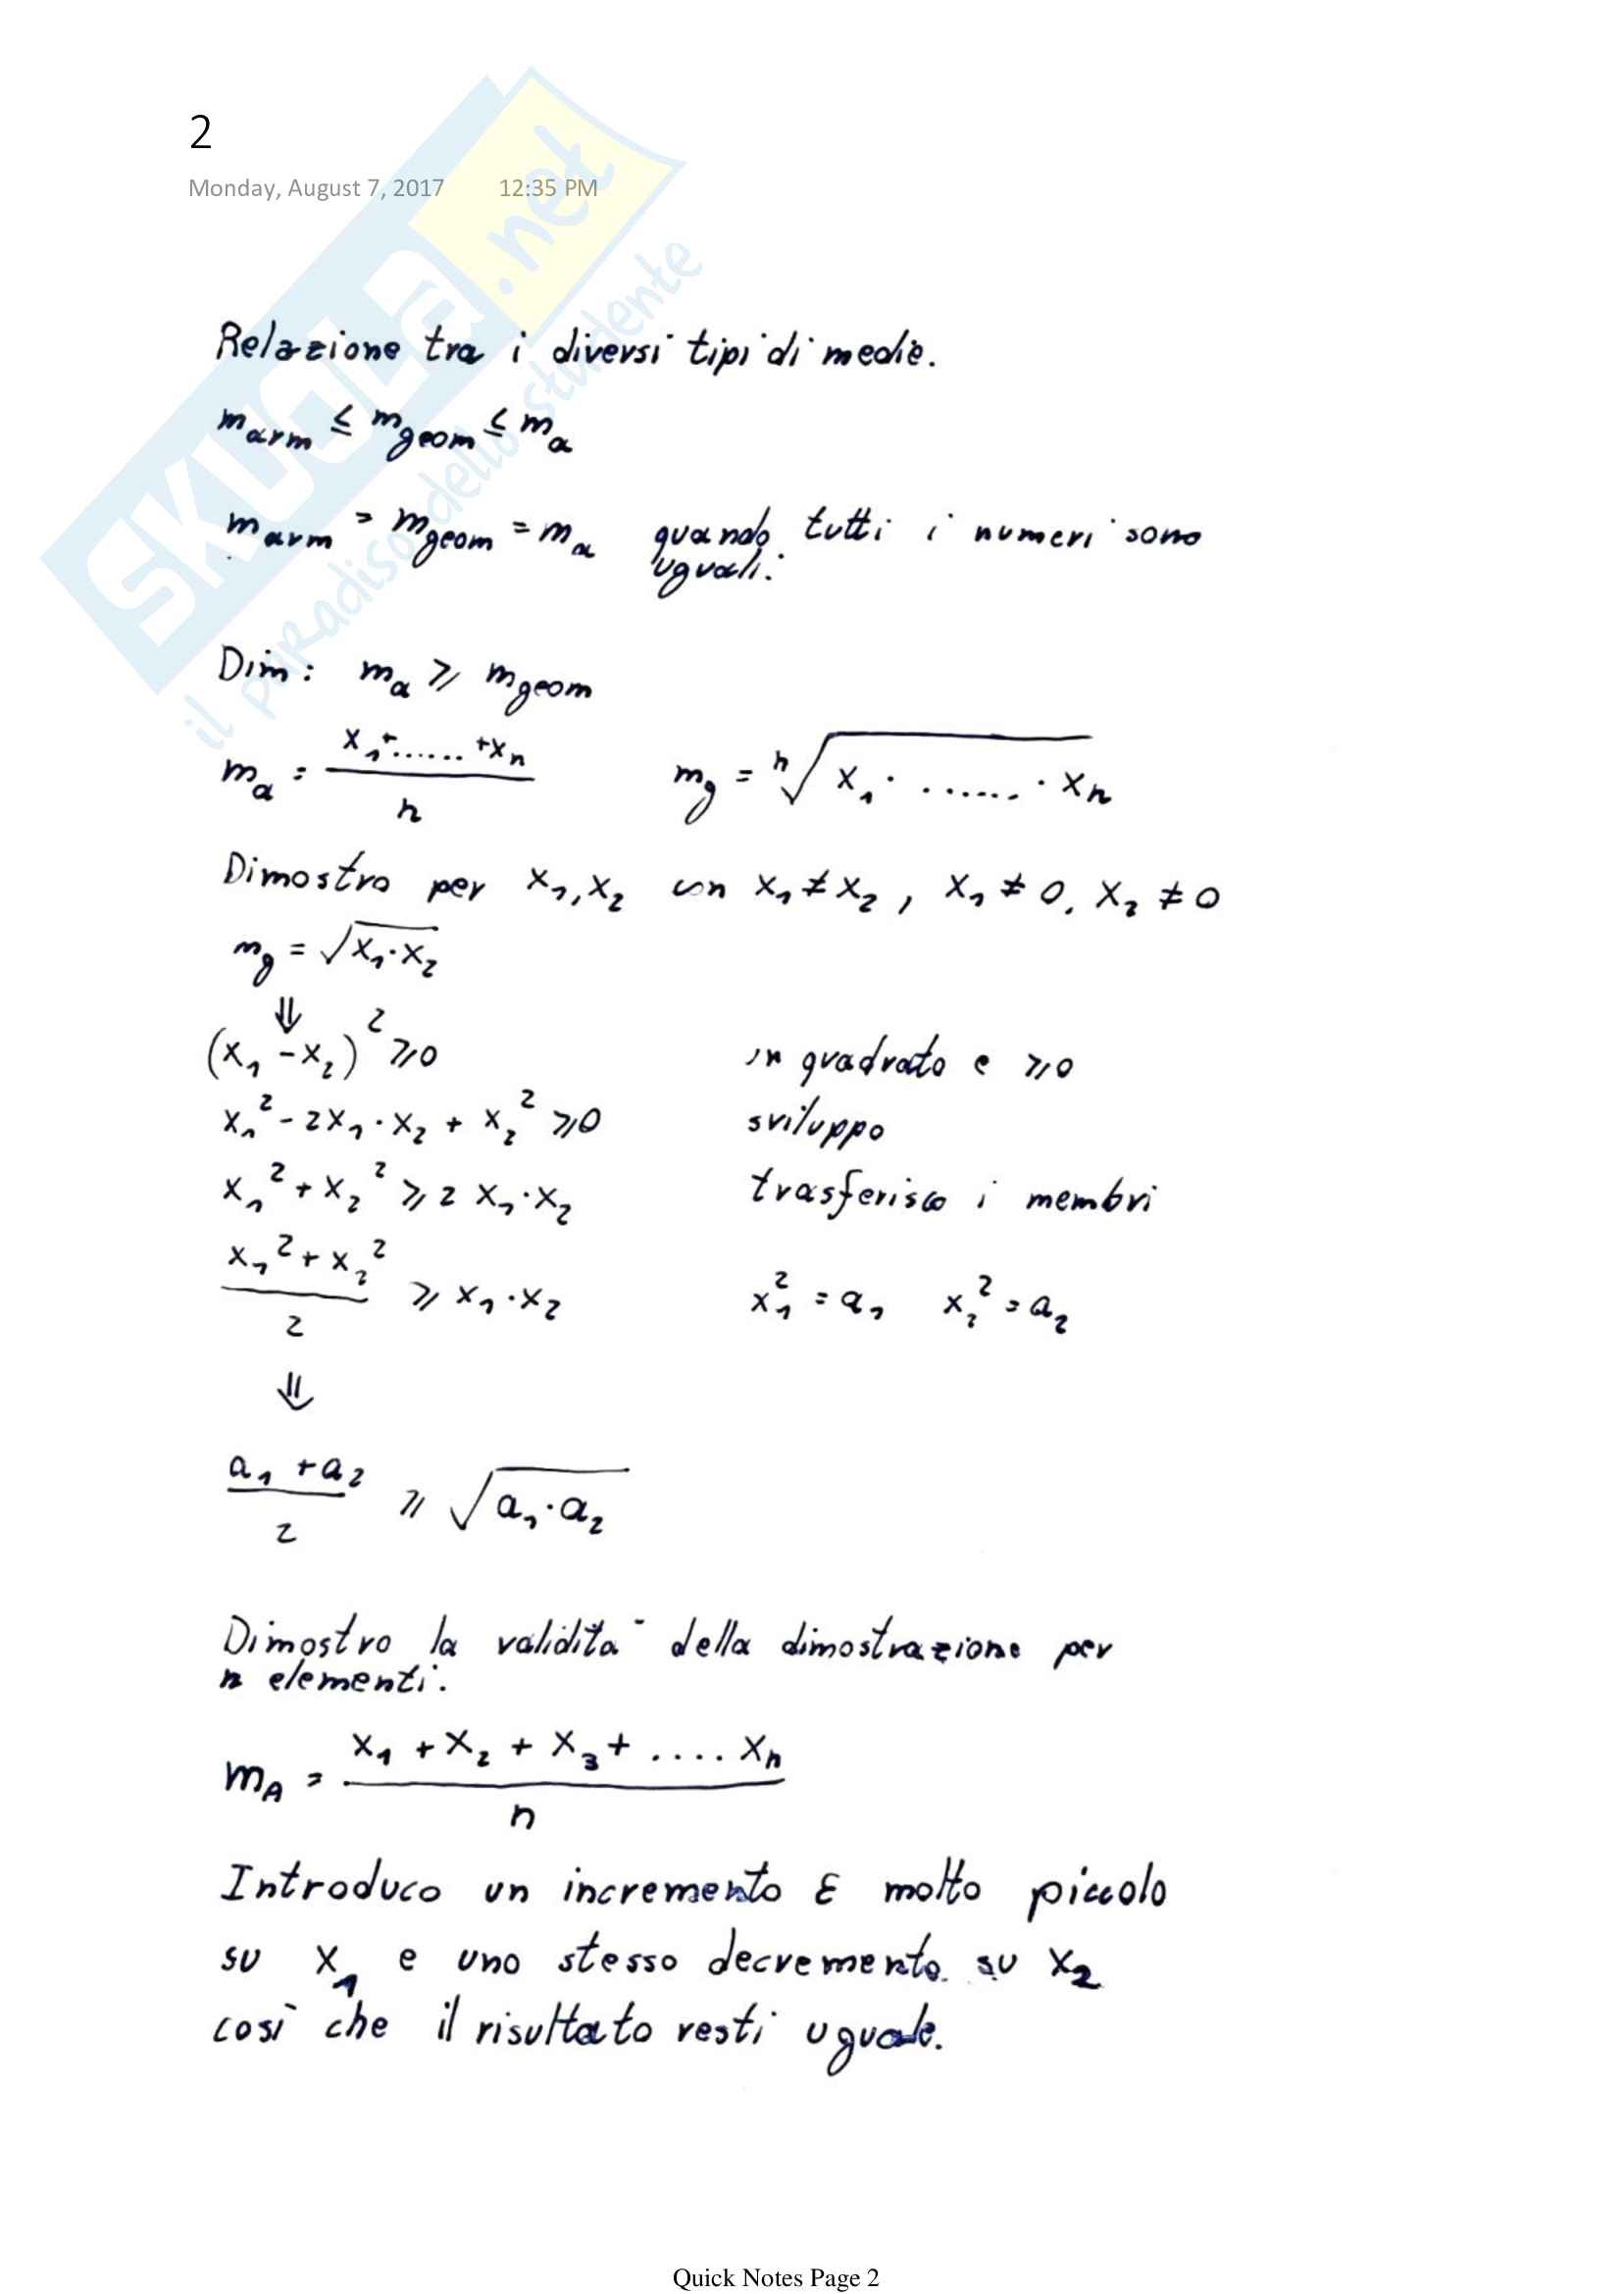 2
Monday, August 7, 2017 12:35 PM
SKUOLA.net
il paradiso dello studente
Relazione tra i diversi tipi di medie.
m_arm ≤ m_geom ≤ m_a
m_arm = m_geom = m_a quando tutti i numeri sono
uguali.
Dim: m_a ≥ m_geom
m_a = (x₁+......+xₙ)/n m_g = ⁿ√(x₁·......·xₙ)
Dimostro per x₁,x₂ con x₁≠x₂, x₁≠0, x₂≠0
m_g = √(x₁·x₂)
⇓
(x₁-x₂)² ≥0 un quadrato e ≥0
x₁²-2x₁·x₂+x₂² ≥0 sviluppo
x₁²+x₂² ≥ 2x₁·x₂ trasferisco i membri
(x₁²+x₂²)/2 ≥ x₁·x₂ x₁²=a₁ x₂²=a₂
⇓
(a₁+a₂)/2 ≥ √(a₁·a₂)
Dimostro la validità della dimostrazione per
n elementi.
m_A = (x₁+x₂+x₃+....xₙ)/n
Introduco un incremento ε molto piccolo
su x₁ e uno stesso decremento su x₂
così che il risultato resti uguale.
Quick Notes Page 2